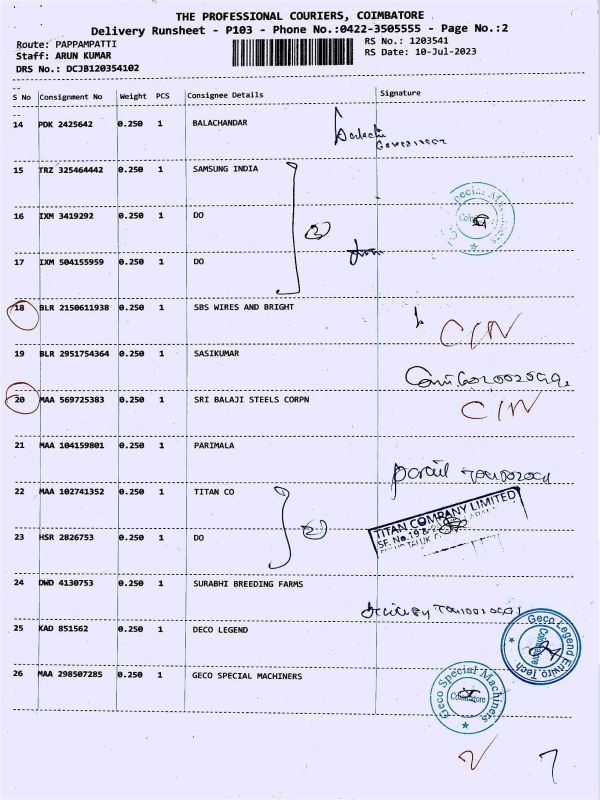 THE PROFESSIONAL COURIERS, COIMBATORE
Delivery Runsheet - P103 - Phone No.:0422-3505555 - Page No.:2
Route: PAPPAMPATTI RS No.: 1203541
Staff: ARUN KUMAR RS Date: 10-Jul-2023
DRS No.: DCJB120354102
S No Consignment No Weight PCS Consignee Details Signature
14 PDK 2425642 0.250 1 BALACHANDAR
15 TRZ 325464442 0.250 1 SAMSUNG INDIA
16 IXM 3419292 0.250 1 DO
17 IXM 504155959 0.250 1 DO
18 BLR 2150611938 0.250 1 SBS WIRES AND BRIGHT
C/N
19 BLR 2951754364 0.250 1 SASIKUMAR
20 MAA 569725383 0.250 1 SRI BALAJI STEELS CORPN C/N
21 MAA 104159801 0.250 1 PARIMALA
22 MAA 102741352 0.250 1 TITAN CO
TITAN COMPANY LIMITED
SF. No. 19 &
23 HSR 2826753 0.250 1 DO
24 DWD 4130753 0.250 1 SURABHI BREEDING FARMS
25 KAD 851562 0.250 1 DECO LEGEND
Geco Legend Enviro Tech
Coimbatore
26 MAA 298507285 0.250 1 GECO SPECIAL MACHINERS
Geco Special Machiners
Coimbatore
7